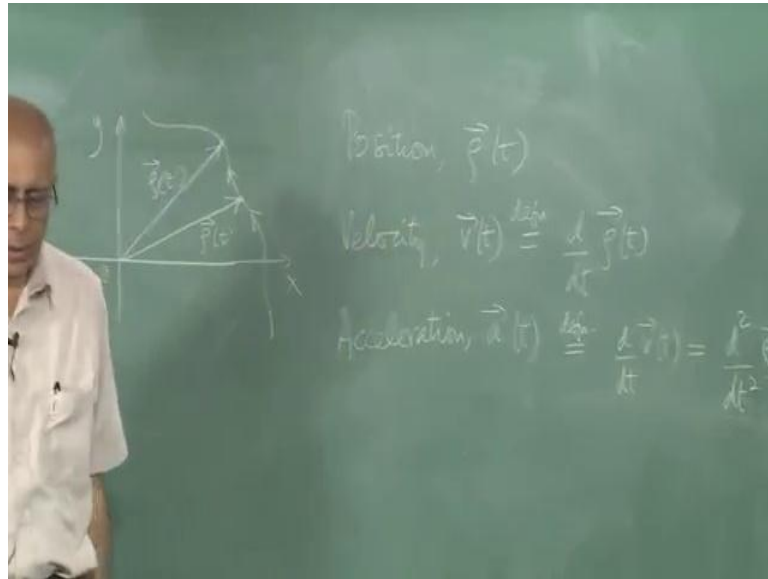 y
ρ⃗(t)
x
Position, ρ⃗(t)
Velocity, v⃗(t) =^{defn} d/dt ρ⃗(t)
Acceleration, a⃗(t) =^{defn} d/dt v⃗(t) = d²/dt²